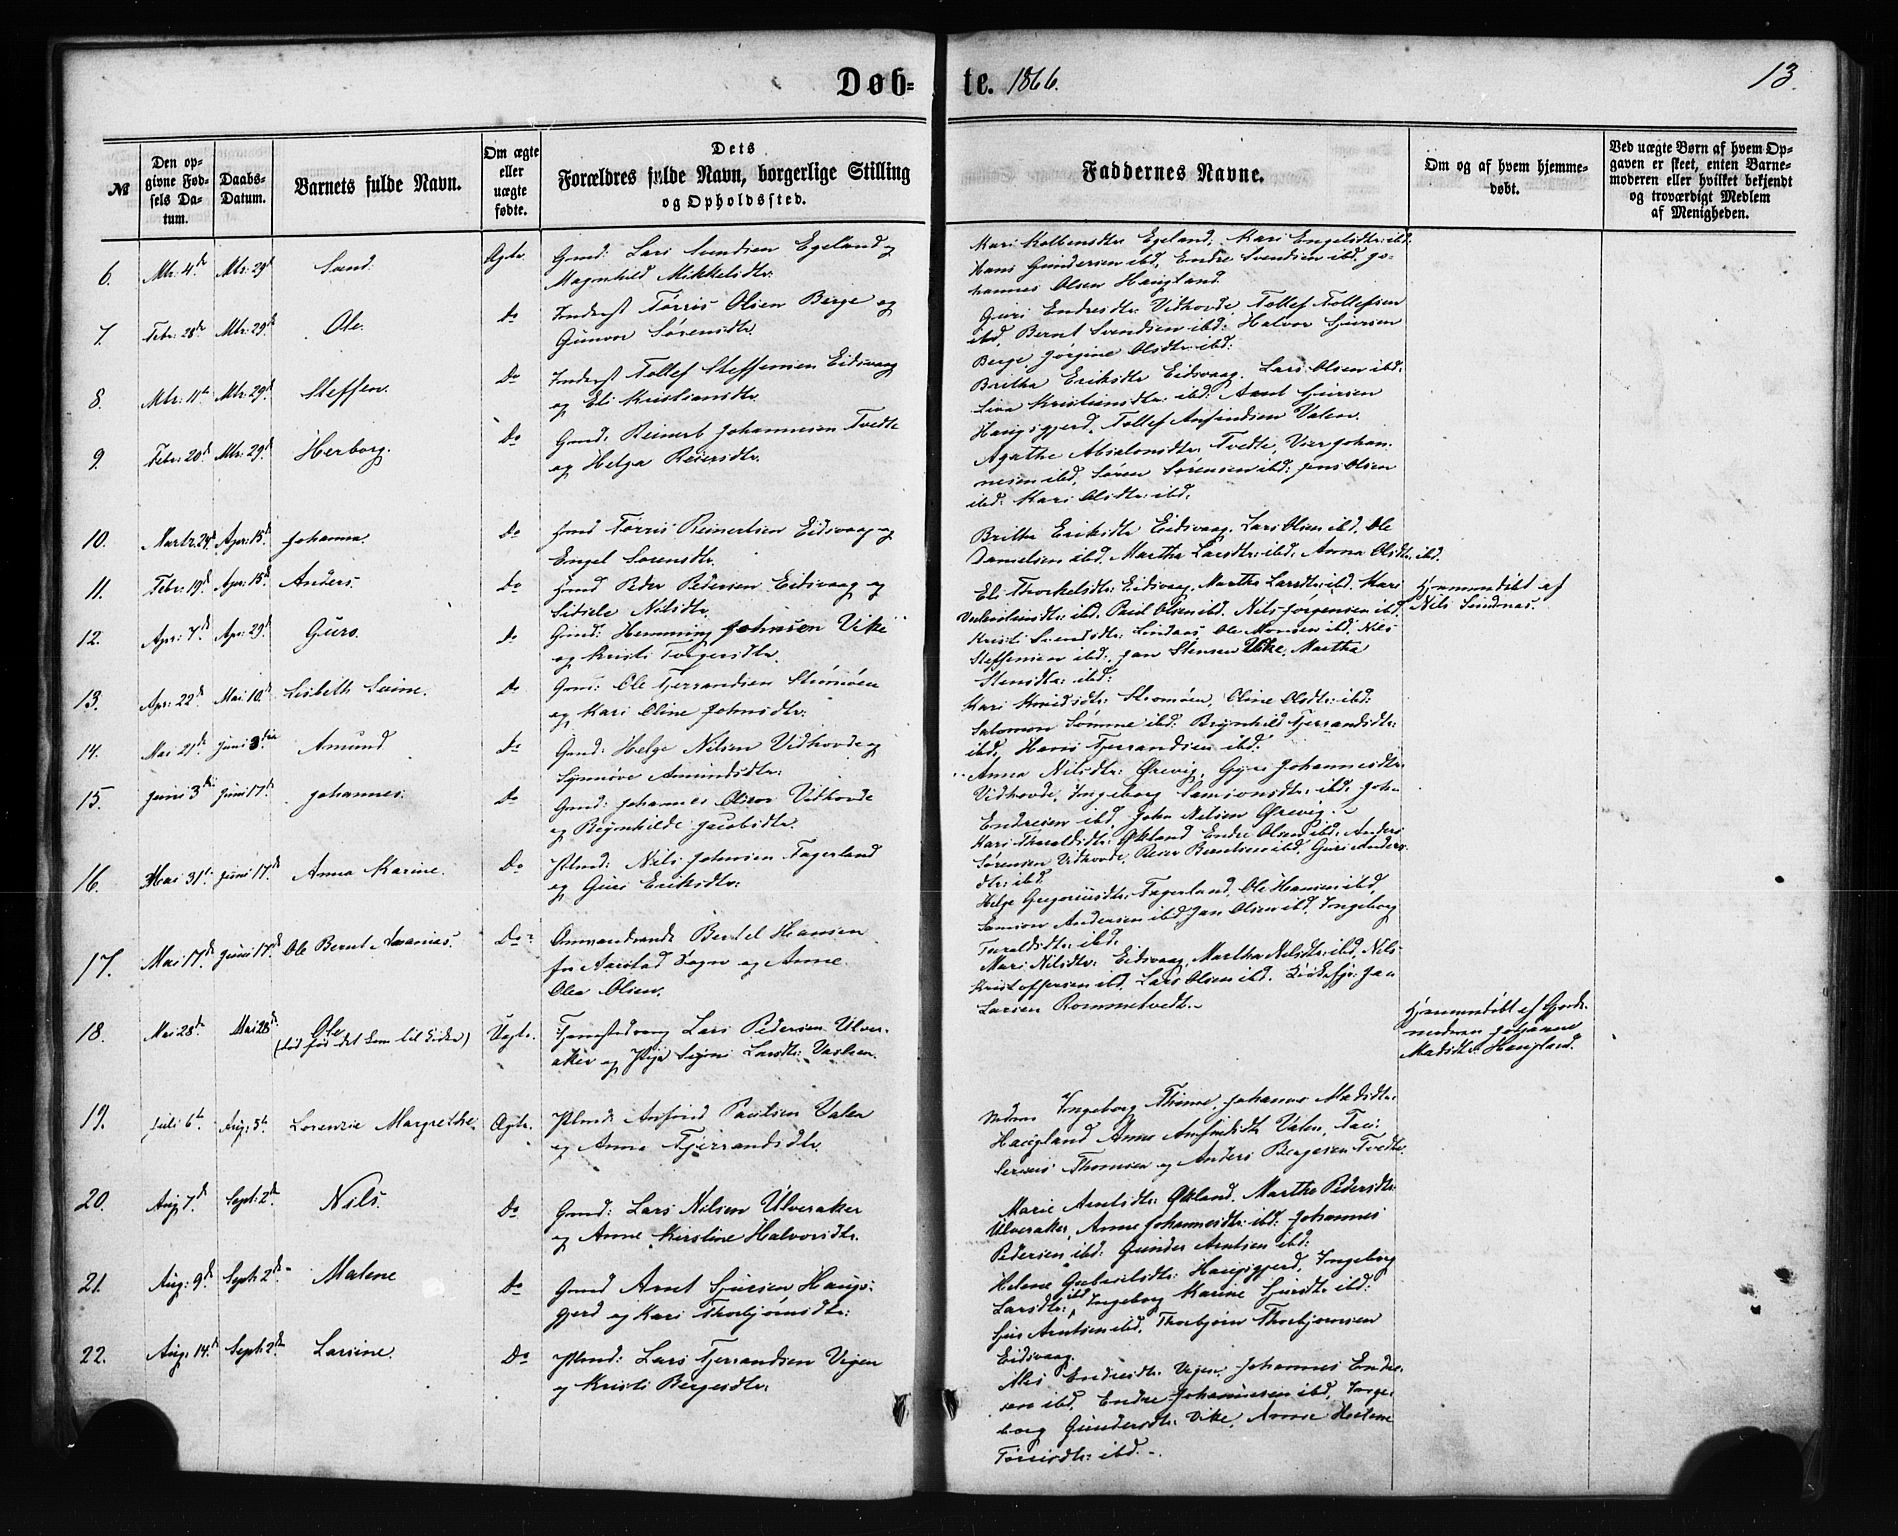 Døb-
te. 1866.
13.
№
Den op-
givne Fød-
sels Da-
tum.
Daabs-
Datum.
Barnets fulde Navn.
Om ægte
eller
uægte
fødte.
Dets
Forældres fulde Navn, borgerlige Stilling
og Opholdssted.
Faddernes Navne.
Om og af hvem hjemme-
døbt.
Ved uægte Børn af hvem Op-
gaven er skeet, enten Barne-
moderen eller hvilket bekjendt
og troværdigt Medlem
af Menigheden.
6. Mts: 4de Mts: 29d Ægte. Gmd: Lars Svendsen Egeland og
Magnhild Mikkelsdtr:
Kari Kolbensdtr: Egeland, Kari Engelsdtr: ibd.
Hans Gundersen ibd, Endre Svendsen ibd, Jo-
hannes Olsen Haugland
7. Febr: 28de Mts: 29d Ole. Do Inderst Tørris Olsen Berge og
Gunvor Sørensdtr.
Guri Endresdtr: Vidhovde, Tollef Tollefsen
ibd, Bernt Svendsen ibd: Halvor Sjursen
Berge Jørgine Olsdtr: ibd:
8. Mts: 11te Mts: 29d Steffen. Do Inderst Tollef Steffensen Eidsvaag
og Eli Kristiansdtr.
Britha Eriksdtr Eidsvaag. Lars Olsen ibd.
Siva Kristiansdtr: ibd: Arnt Sjursen
Haugsgjerd, Tollef Anfindsen Valen.
9. Febr: 20d Mts: 29d Herborg. Do Gmd: Reinert Johannesen Tvedte
og Helga Reiersdtr.
Agathe Absalonsdtr: Tvedte, Johan-
nesen ibd, Søren Sørensen ibd: Jens Olsen
ibd: Kari Olsdtr: ibd.
10. Marts. 24d Apr: 15d Johanna. Do Hmd Tørris Reinertsen Eidsvaag og
Engel Sørensdtr.
Britha Eriksdtr Eidsvaag. Lars Olsen ibd, Ole
Danielsen ibd, Martha Larsdtr: ibd. Anna Olsdtr: ibd.
11. Febr: 19d Apr: 15d Anders. Do Hmd Peder Pedersen Eidsvaag og
Nilsdtr.
Eli Thorkelsdtr: Eidsvaag, Martha Larsdtr: ibd, Kari
ibd, Paul Olsen ibd. Nils Jørgensen ibd.
Hjemmedøbt af
Nils Sundnas.
12. Apr: 7d Apr: 29d Guro. do Gmd: Hemming Johnsen Vike
og Kristi Torgersdtr.
Kristi Svendsdtr: Lindaas, Ole Monsen ibd, Nils
Steffensen ibd: Jan Stensen Vike. Martha
Stensdtr: ibd:
13. Apr: 22d Mai 10d Lisbeth Do Gmd: Ole Fjerrandsen Strømøen
og Kari Oline Johnsdtr:
Kari Strømøen, Oline Olsdtr: ibd:
Salomon Sømme ibd: Brynhild Fjerrandsdtr:
ibd, Hans Fjerrandsen ibd:
14. Mai 21d Juni 3die Amund Do Gmd: Helge Nilsen Vidhovde og
Synnøve Amundsdtr:
Anna Nilsdtr: Ørevig, Johannesdtr:
Vidhovde, Ingeborg Samsonsdtr: ibd: Joh
Endresen ibd, John Nilsen Ørevig.
15. Juni 3die Juni 17d. Johannes. Do Gmd: Johannes Olsen Vidhovde
og Brynhilde Jacobsdtr.
Kari Tharaldsdtr: Økland Endre Olsen ibd. Anders
Sørensen Vidhovde, Reier Berntsen ibd, Guri Anders
dtr: ibd.
16. Mai 31te Juni 17d Anna Karine. Do Plmd: Nils Johnsen Fagerland
og Guri Eriksdtr:
Helge Gregoriusdtr: Fagerland, Ole Hansen ibd,
Samson Andersen ibd, Jan Olsen ibd, Ingeborg
Taraldsdtr: ibd.
17. Mai 17d. Juni 17d Ole Bernt Ananias. Do: Omvandrende Bertel Hansen
fra Aarstad Sogn og Anne
Olea Olsen.
Mari Nilsdtr: Eidsvaag, Martha Nilsdtr: ibd, Nils
Kristoffersen ibd, Lars Olsen ibd. Jan
Larsen Rommetvedt.
18. Mai 28de Mai 28d Ole
(død før det kom til Kirke) Uægte. Lars Pedersen Ulver-
aker og Pige Signi Larsdtr:
Hjemmedøbt af Jorde-
moderen Johanne
Madsdtr: Haugland.
19. Juli 6te Aug: 5te Lorenzie Margrethe Ægte. Plmd: Anfind Paulsen Valen
og Anna Fjerrandsdtr.
Ingeborg Johanne Madsdtr:
Haugland Anna Anfindsdtr Valen,
Thomsen og Anders Bergesen Tvedte
20. Aug 7d. Sept: 2de Nils. Do Gmd: Lars Nilsen Ulveraker
og Anne Kirstine Halvorsdtr.
Marie Arntsdtr: Økland. Marthe Pedersdtr:
Ulveraker, Anne Johannesdtr: ibd: Johannes
Pedersen ibd: Gunder Arntsen ibd:
21. Aug: 9d Sept: 2de Malene Do Gmd Arnt Sjursen Haugs-
gjerd og Kari Thorbjørnsdtr:
Helene Haugsgjerd, Ingeborg
Larsdtr: ibd, Ingeborg Karine Sjursdtr ibd:
Sjur Arntsen ibd, Thorbjørn Thorbjørnsen
Eidsvaag.
22. Aug: 14de Sept: 2de Larsine. Do Plmd: Lars Fjerrandsen Vigen
og Kristi Bergesdtr:
Endresdtr: Vigen, Johannes Endre-
sen ibd, Endre Johannesen ibd, Inge-
borg Gundersdtr: Vike, Anna Helene
Tørrisdtr: ibd.